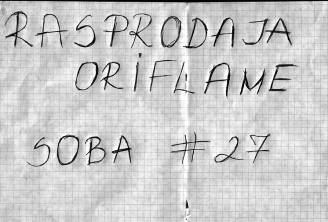 RASPRODAJA
ORIFLAME
SOBA #27